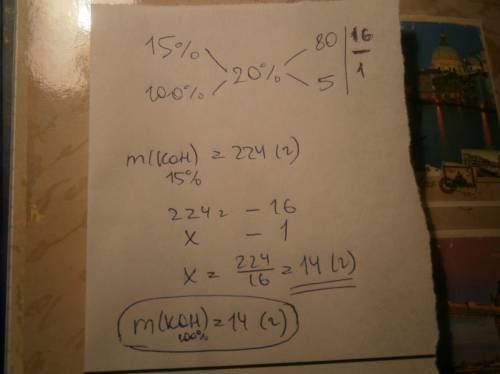 15% 80 | 16
20%
100% 5 | 1
m(KOH) = 224 (г)
15%
224г – 16
x – 1
x = 224/16 = 14 (г)
m(KOH) = 14 (г)
100%